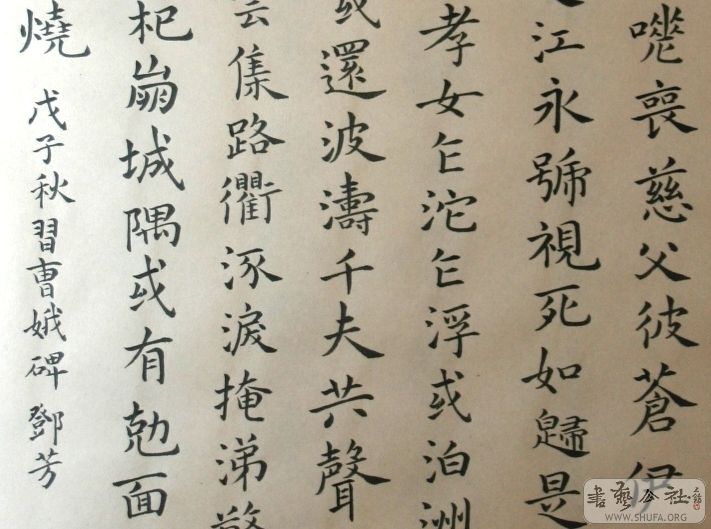 嗟喪慈父彼蒼伊
江永號視死如歸是
孝女乍沉乍浮或泊洲
或還波濤千夫共聲
雲集路衢流淚掩涕驚
杞崩城隅或有勊面
燒
戊子秋習曹娥碑 鄧芳
書藝公社
WWW.SHUFA.ORG